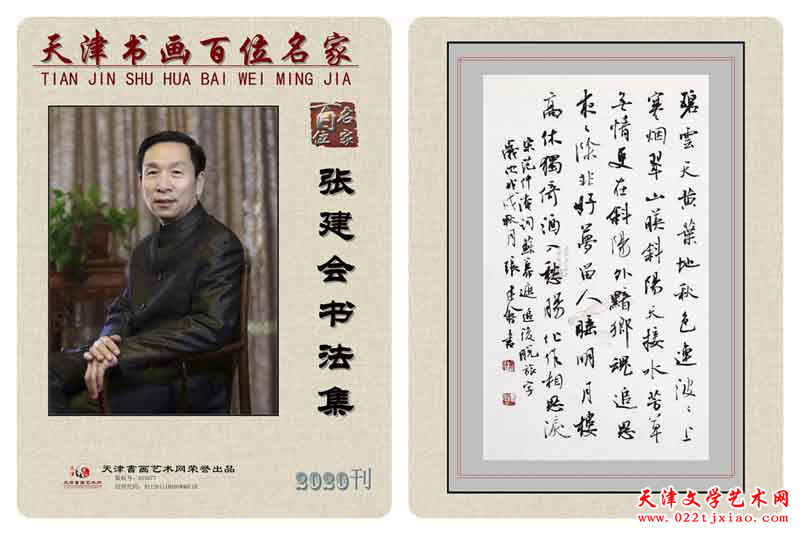 天津书画百位名家
TIAN JIN SHU HUA BAI WEI MING JIA
百位名家
张建会书法集
天津書画艺术网荣誉出品
2020刊
碧雲天黃葉地秋色連波〻上
寒烟翠山暎斜陽天接水芳草
無情更在斜陽外黯鄉魂追思
夜〻除非好夢留人睡明月樓
高休獨倚酒入愁腸化作相思淚
宋范仲淹詞蘇幕遮 追後脫旅字
歲次戊戌秋月張建會書
天津文学艺术网
www.022tjxiao.com